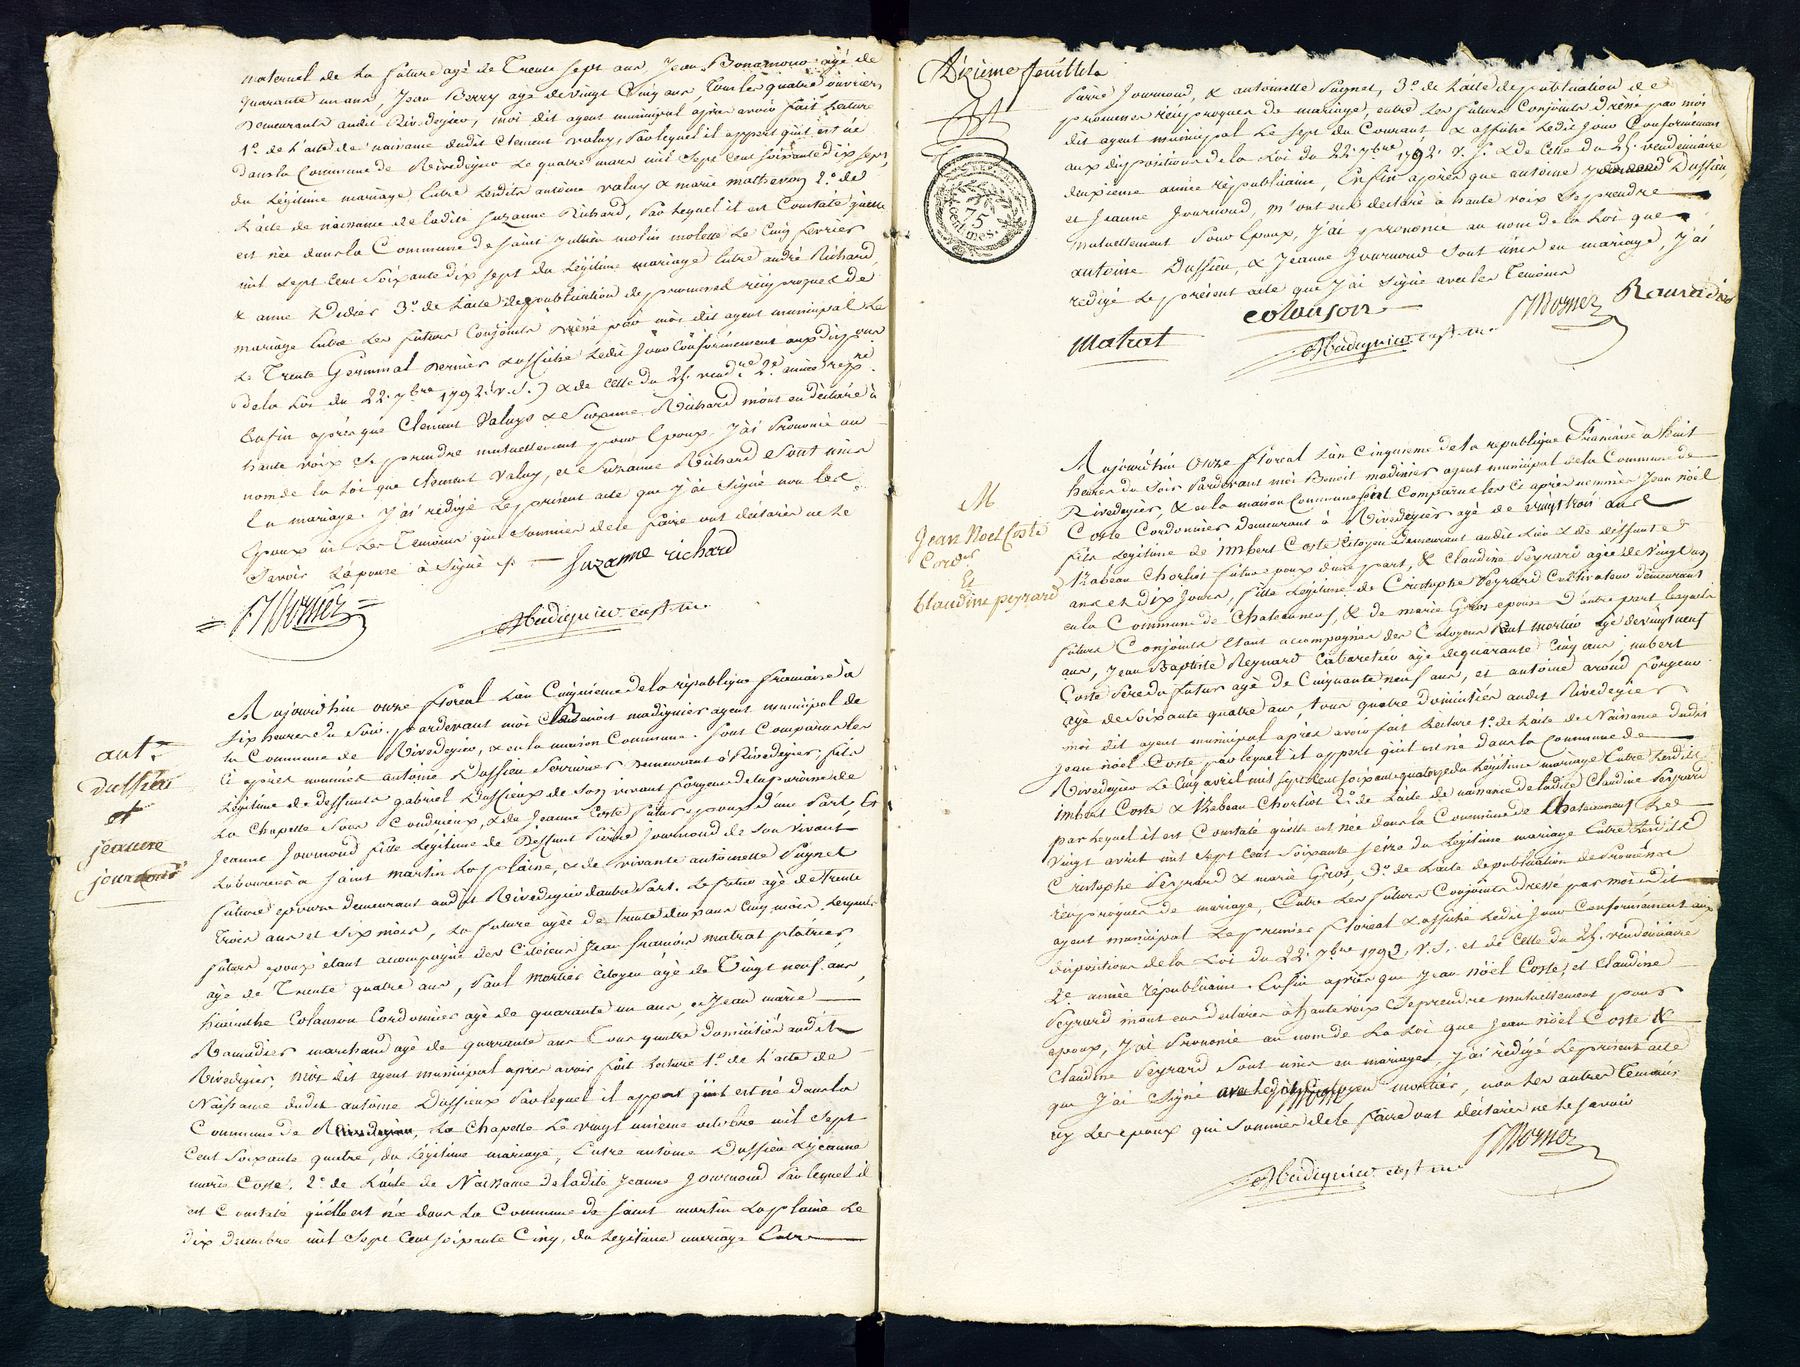 maternel de la future agé de Trente sept ans, Jean Bonamour agé de
quarante un ans, Jean Berry agé de vingt Cinq ans, tous les quatre ouvriers
demeurants audit Rivedegier, moi dit agent municipal après avoir fait lecture
1.° de l'acte de naissance dudit Clement valuy, par lequel il appert qu'il est né
dans la Commune de Rivedegier le quatre mars mil sept cent soixante dix sept
du légitime mariage entre lesdits antoine valuy & marie matheron 2.° de
l'acte de naissance de ladite Suzanne Richard, par lequel il est Constaté qu'elle
est née dans la Commune de Saint jullien molin molette le Cinq fevrier
mil sept cent Soixante dix sept du légitime mariage entre andré Richard,
& anne Didier 3.° de l'acte de publication de promesses réciproques de
mariage entre les futurs Conjoints dressé par moi dit agent municipal le
Trente Germinal dernier & affiché ledit jour Conformément aux dispons
de la Loi du 22. 7bre 1792. (v.S.) & de celle du 25. vendre 2e. année rep.ne
Enfin après que Clement Valuy & Suzanne Richard m'ont eu déclaré à
haute voix se prendre mutuellement pour époux, j'ai prononcé au
nom de la Loi que Clement Valuy, et Suzanne Richard sont unis
en mariage. j'ai rédigé le présent acte que j'ai signé non les
Epoux ni les Temoins qui sommés de le faire ont déclarés ne le
Savoir l'épouse a signé ./. — Suzanne richard
Madignier agt m.
ant.e
dussieu
et
jeanne
journoud
Aujourd'hui onze floreal l'an Cinquieme de la république francaise à
six heures du Soir, pardevant moi Benoit madignier agent municipal de
la Commune de Rivedegier, & en la maison Commune Sont Comparus les
Ci après nommés antoine Dussieu Serrurier demeurant à Rivedegier fils
légitime de deffunts gabriel Dussieux de Son vivant forgeur de la paroisse de
la Chapelle Sous Condrieux, & de Jeanne Coste futur epoux d'une part, et
Jeanne Journoud fille légitime de deffunt pierre Journoud de Son vivant
laboureur à Saint martin la plaine, & de vivante antoinette Puynel
future epouse demeurant audit Rivedegier d'autre part. le futur agé de trente
trois ans et six mois, la future agée de trente deux ans cinq mois, lesquels
futurs epoux étant accompagné des Citoiens Jean francois matrat platrier,
agé de Trente quatre ans, Paul mortier Citoyen agé de Vingt neuf ans,
hiacinthe Colanson Cordonnier agé de quarante un ans, et Jean marie
Ramadier marchand agé de quarante ans Tous quatre domiciliés audit
Rivedegier, moi dit agent municipal après avoir fait lecture 1.° de l'acte de
Naissance dudit antoine Dussieux par lequel il appert qu'il est né dans la
Commune de la Chapelle le vingt unieme octobre mil Sept
Cent Soixante quatre, du légitime mariage, Entre antoine Dussieu & jeanne
marie Coste. 2.° de l'acte de Naissance de ladite Jeanne Journoud par lequel il
est Constaté qu'elle est née dans la Commune de Saint martin la plaine le
dix decembre mil Sept Cent soixante Cinq, du légitime mariage Entre
Dixieme feuillet
75
centimes.
Pierre Journoud, & antoinette Puynel, 3.° de l'acte de publication de
promesses réciproques de mariage, entre les futurs Conjoints dressé par moi
dit agent municipal le sept du Courant & affiché ledit jour Conformément
aux dispositions de la Loi du 22. 7bre 1792. v. S. & de celle du 25. vendemiaire
deuxieme année républicaine, Enfin après que antoine Dussieu,
et Jeanne Journoud, m'ont eus déclaré à haute voix Se prendre
mutuellement Pour Epoux, j'ai prononcé au nom de la Loi que
antoine Dussieu, & Jeanne Journoud Sont unis en mariage, j'ai
redigé le présent acte que j'ai Signé avec les Temoins
matrat colanson Ramadier
Madignier agt m.
M
Jean Noel Coste
Cordr
Et
Claudine peyrard
Aujourd'hui Onze floreal L'an Cinquieme de la republique Francaise à huit
heures du Soir Pardevant moi Benoit madinier agent municipal de la Commune de
Rivedegier, & en la maison Commune sont Comparus les Ci après nommés Jean Noël
Coste Cordonnier demeurant à Rivedegier agé de vingt trois ans
fils légitime de imbert Coste Citoyen demeurant audit lieu & de deffunte
Izabeau Chorliot futur epoux d'une part, & Claudine Peyrard agée de Vingt un
ans et dix Jours, fille légitime de Cristophe Peyrard Cultivateur demeurant
en la Commune de Chateauneuf, & de marie Gros epouse D'autre part lesquels
futurs Conjoints étant accompagnés des Citoyens Paul mortier agé de vingt neuf
ans, Jean Baptiste Reynard Cabaretier agé de quarante Cinq ans, imbert
Coste Pere du futur agé de Cinquante neuf ans, et antoine aroud forgeur
agé de Soixante quatre ans, tous quatre domiciliés audit Rivedegier
moi dit agent municipal après avoir fait lecture 1.° de l'acte de Naissance dudit
Jean noël Coste par lequel il appert qu'il est né dans la Commune de
Rivedegier le Cinq avril mil sept Cent soixante quatorze du légitime mariage entre lesdits
imbert Coste & Izabeau Chorliot 2.° de l'acte de naissance de ladite Claudine Peyrard
par lequel il est Constaté qu'elle est née dans la Commune de Chateauneuf le
Vingt avril mil sept Cent Soixante Seize du légitime mariage Entre lesdits
Cristophe Peyrard & marie Gros, 3.° de l'acte de publication de Promesses
réciproques de mariage, Entre les futurs Conjoints dressé par moi dit
agent municipal le premier floreal & affiché ledit jour Conformément aux
dispositions de la Loi du 22. 7bre 1792, v.S. et de celle du 25. vendemiaire
2e. année républicaine. Enfin après que Jean noël Coste, et Claudine
Peyrard m'ont eus declarés à haute voix Se prendre mutuellement pour
epoux, j'ai Prononcé au nom de la Loi que Jean noël Coste &
Claudine Peyrard Sont unis en mariage, j'ai rédigé le présent acte
que j'ai signé avec le Citoyen mortier, non les autres Temoins
ny les epoux qui sommés de le faire ont déclarés ne le Savoir
Madignier agt m.